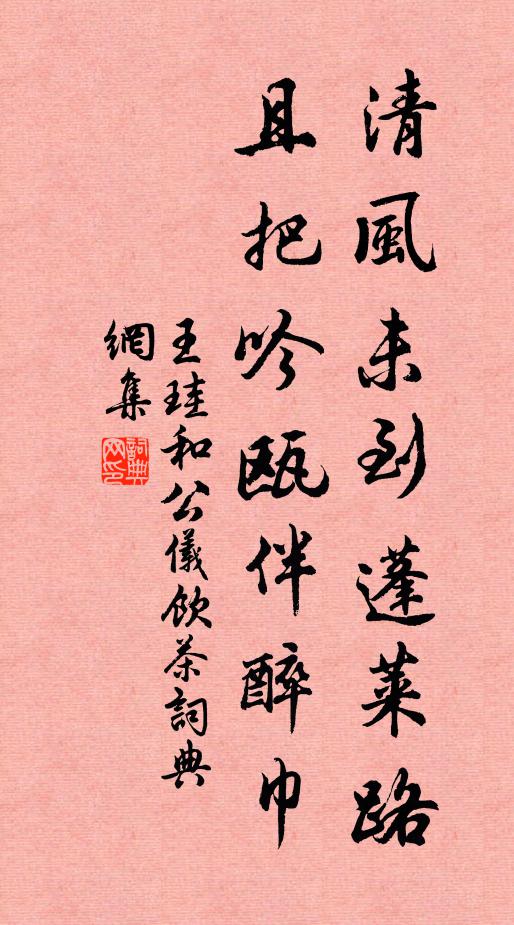 清風未到蓬萊路
且把吟甌伴醉巾
王珪和公儀飲茶詞典
網集
詞典网印